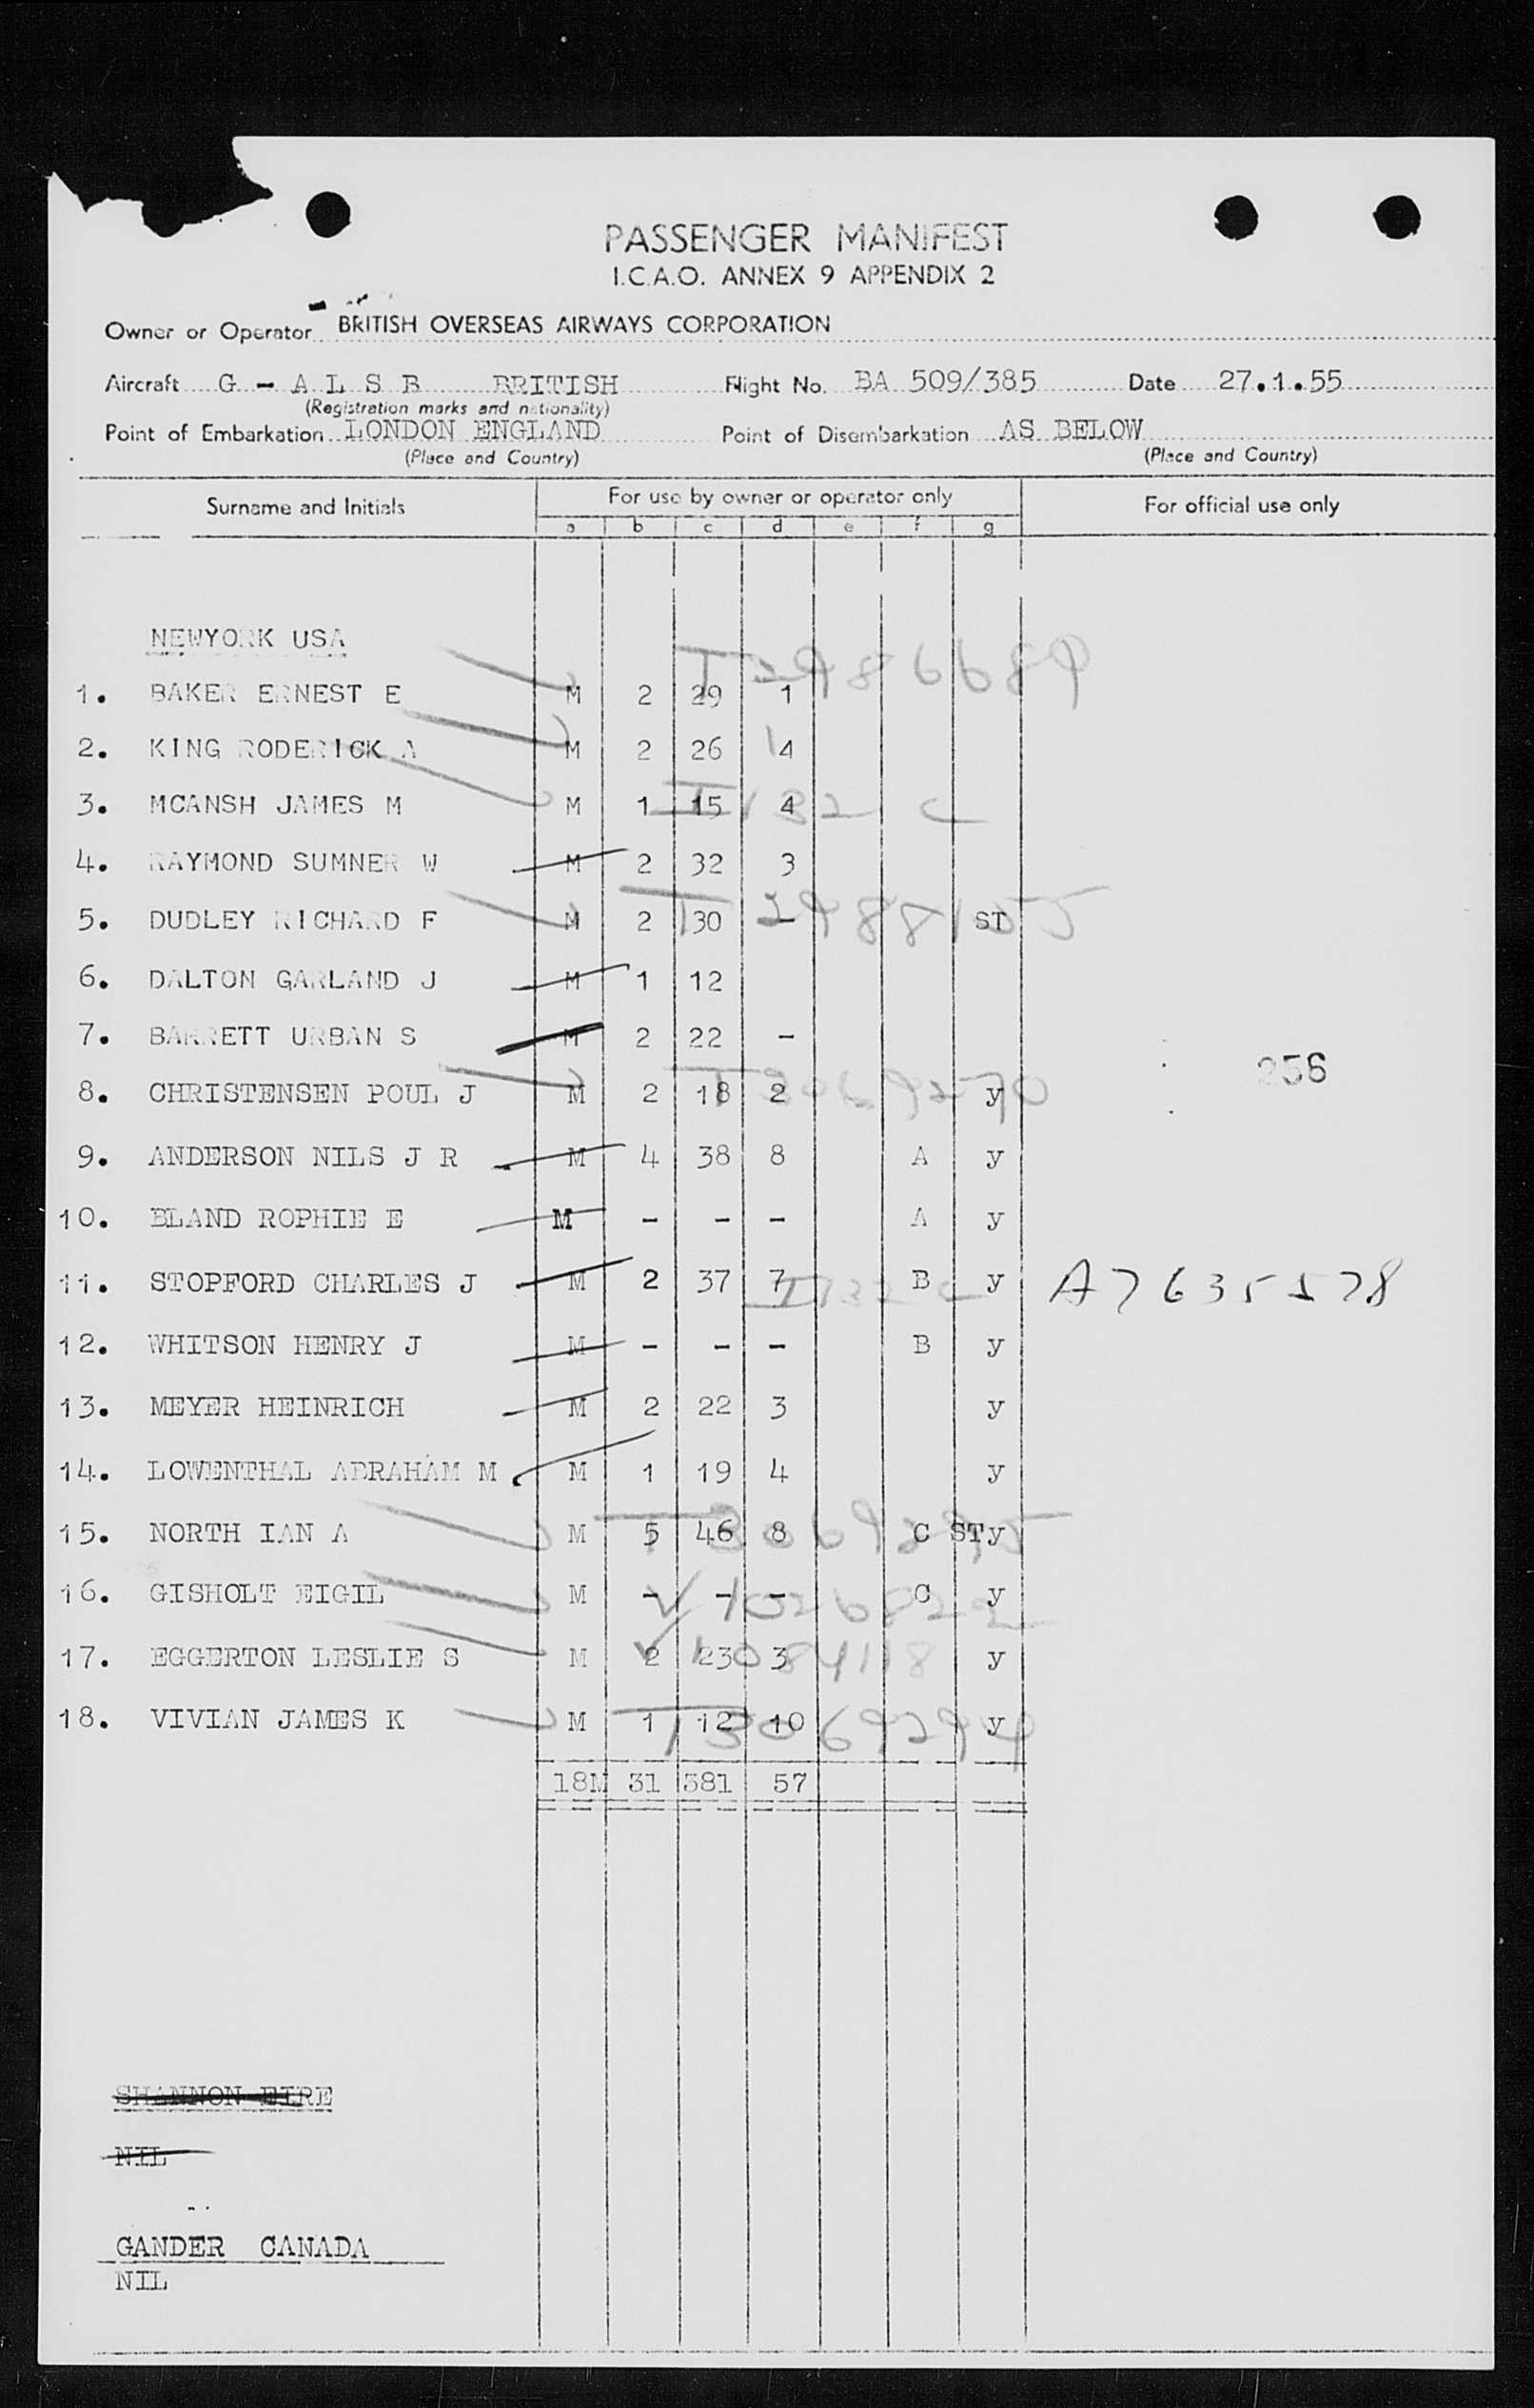 PASSENGER MANIFEST
I.C.A.O. ANNEX 9 APPENDIX 2
Owner or Operator BRITISH OVERSEAS AIRWAYS CORPORATION
Aircraft G - A L S B BRITISH Flight No. BA 509/385 Date 27.1.55
(Registration marks and nationality)
Point of Embarkation LONDON ENGLAND Point of Disembarkation AS BELOW
(Place and Country) (Place and Country)
Surname and Initials For use by owner or operator only For official use only
a b c d e f g
NEWYORK USA
1. BAKER ERNEST E M 2 29 1
2. KING RODERICK A M 2 26 14
3. MCANSH JAMES M M 1 15 4
4. RAYMOND SUMNER W M 2 32 3
5. DUDLEY RICHARD F M 2 30 - ST
6. DALTON GARLAND J M 1 12
7. BARRETT URBAN S M 2 22 -
256
8. CHRISTENSEN POUL J M 2 18 2 y
9. ANDERSON NILS J R M 4 38 8 A y
10. BLAND ROPHIE E M - - - A y
11. STOPFORD CHARLES J M 2 37 7 B y
12. WHITSON HENRY J M - - - B y
13. MEYER HEINRICH M 2 22 3 y
14. LOWENTHAL ABRAHAM M M 1 19 4 y
15. NORTH IAN A M 5 46 8 C STy
16. GISHOLT EIGIL M - - - C y
17. EGGERTON LESLIE S M 2 23 3 y
18. VIVIAN JAMES K M 1 12 10 y
18M 31 381 57
SHANNON EIRE
NIL
GANDER CANADA
NIL